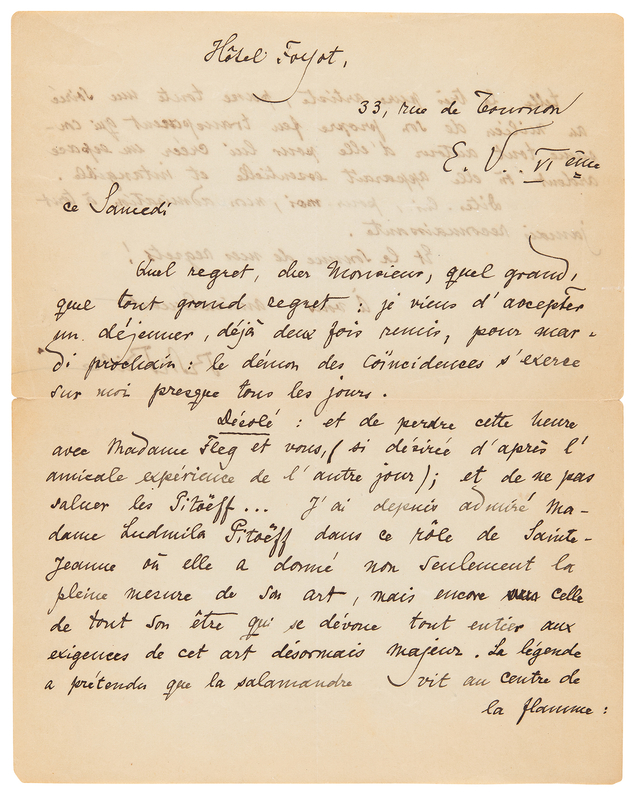 Hôtel Foyot,
33, rue de Tournon
E. V. VIème
ce Samedi
Quel regret, cher Monsieur, quel grand,
que tout grand regret : je viens d'accepter
un déjeuner, déjà deux fois remis, pour mar-
di prochain : le démon des coïncidences s'exerce
sur moi presque tous les jours.
Désolé : et de perdre cette heure
avec Madame Fleg et vous, (si désirée d'après l'
amicale expérience de l'autre jour); et de ne pas
saluer les Pitoëff... J'ai depuis admiré Ma-
dame Ludmila Pitoëff dans ce rôle de Sainte-
Jeanne où elle a donné non seulement la
pleine mesure de son art, mais encore celle
de tout son être qui se dévoue tout entier aux
exigences de cet art désormais majeur. La légende
a prétendu que la salamandre vit au centre de
la flamme :